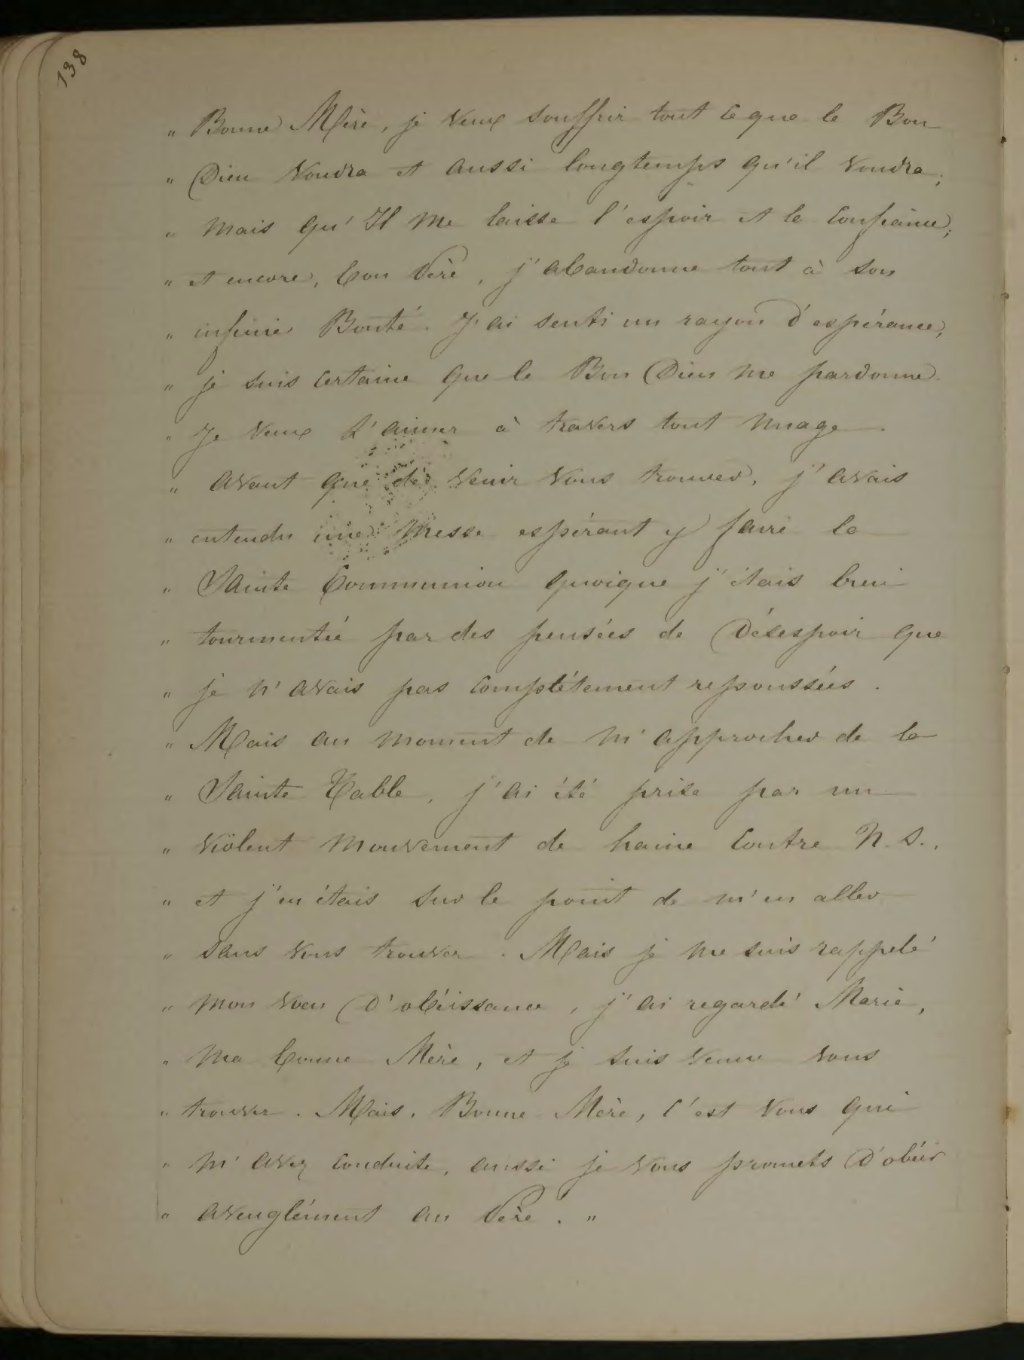 138
" Bonne Mère, je veux souffrir tout ce que le Bon
" Dieu voudra et aussi longtemps qu'il voudra;
" mais qu'Il me laisse l'espoir et la confiance;
" et encore, bon Père, j'abandonne tout à son
" infinie Bonté. J'ai senti un rayon d'espérance;
" je suis certaine que le Bon Dieu me pardonne.
" Je veux L'aimer à travers tout nuage.
" Avant que de venir vous trouver, j'avais
" entendu une Messe espérant y faire la
" Sainte Communion quoique j'étais bien
" tourmentée par des pensées de Désespoir que
" je n'avais pas complètement repoussées.
" Mais au moment de m'approcher de la
" Sainte Table, j'ai été prise par un
" violent mouvement de haine contre N.S.,
" et j'en étais sur le point de m'en aller
" sans vous trouver. Mais je me suis rappelé
" mon vœu d'obéissance, j'ai regardé Marie,
" ma bonne Mère, et je suis venue vous
" trouver. Mais, Bonne Mère, c'est vous qui
" m'avez conduite, aussi je vous promets d'obéir
" aveuglément au Père. "